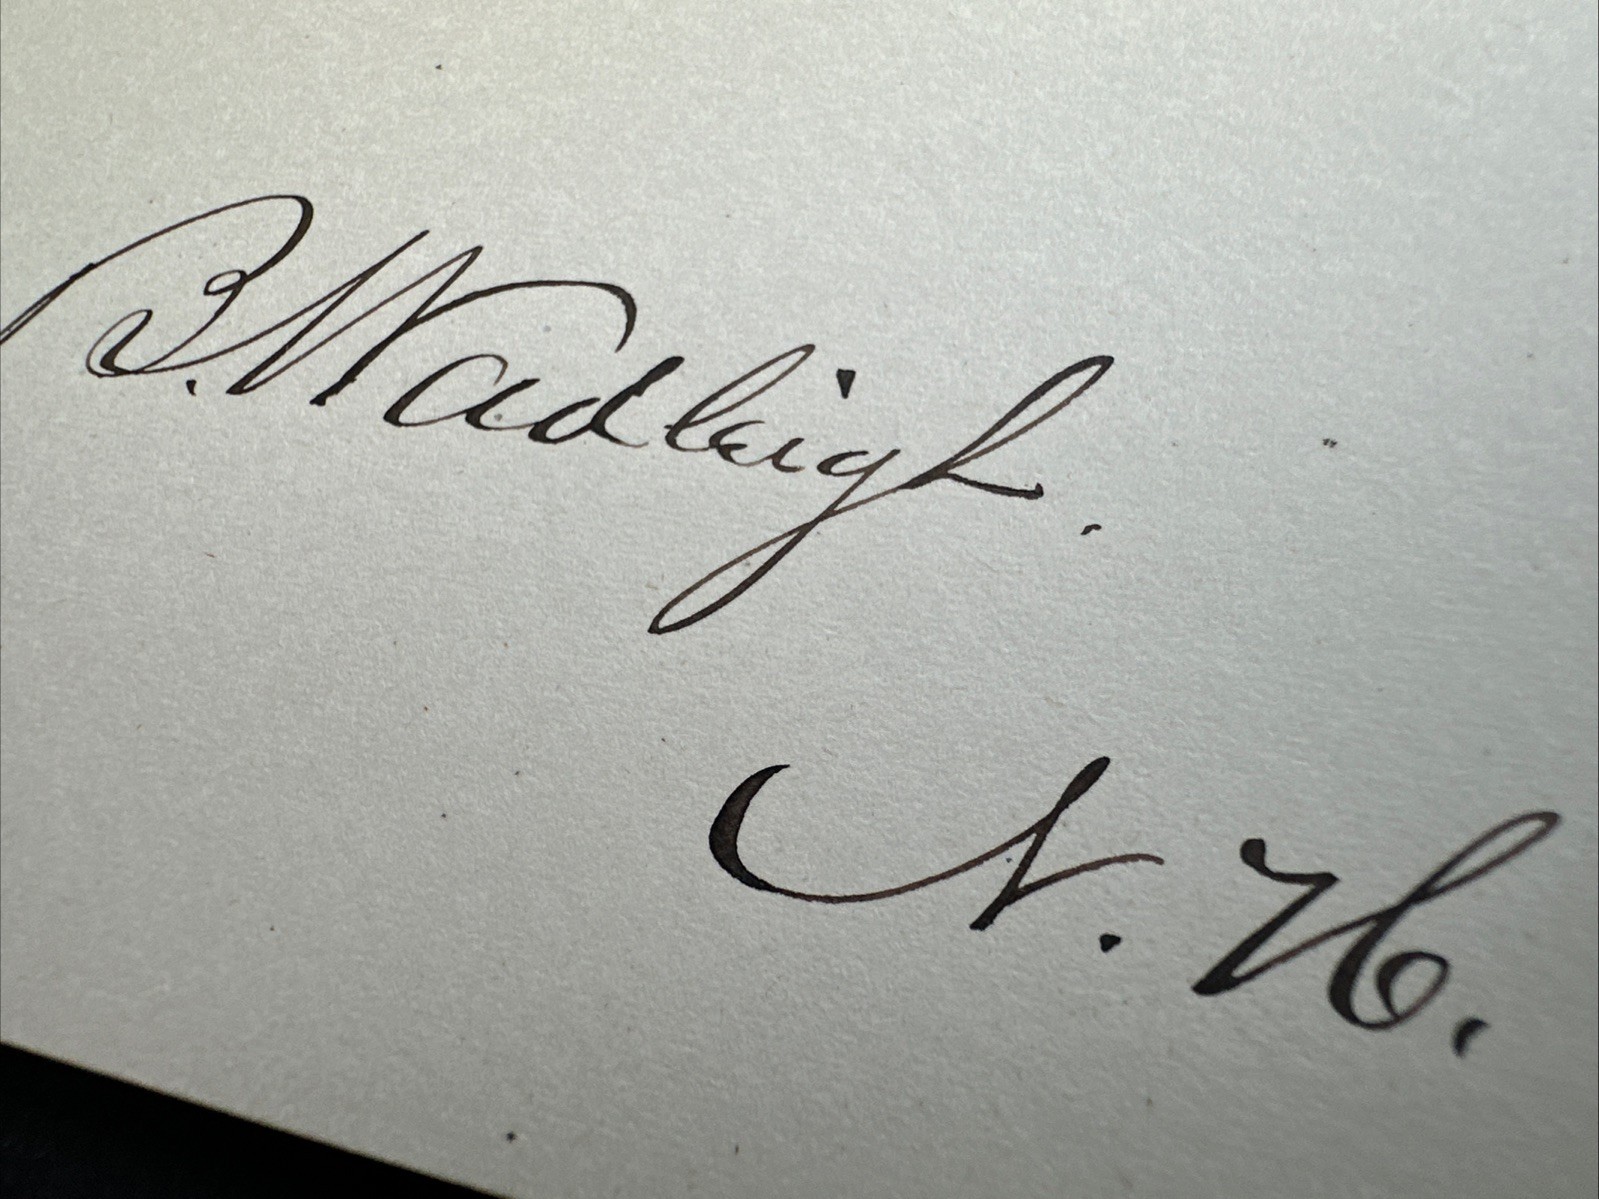 B. Wadleigh.
N. H.